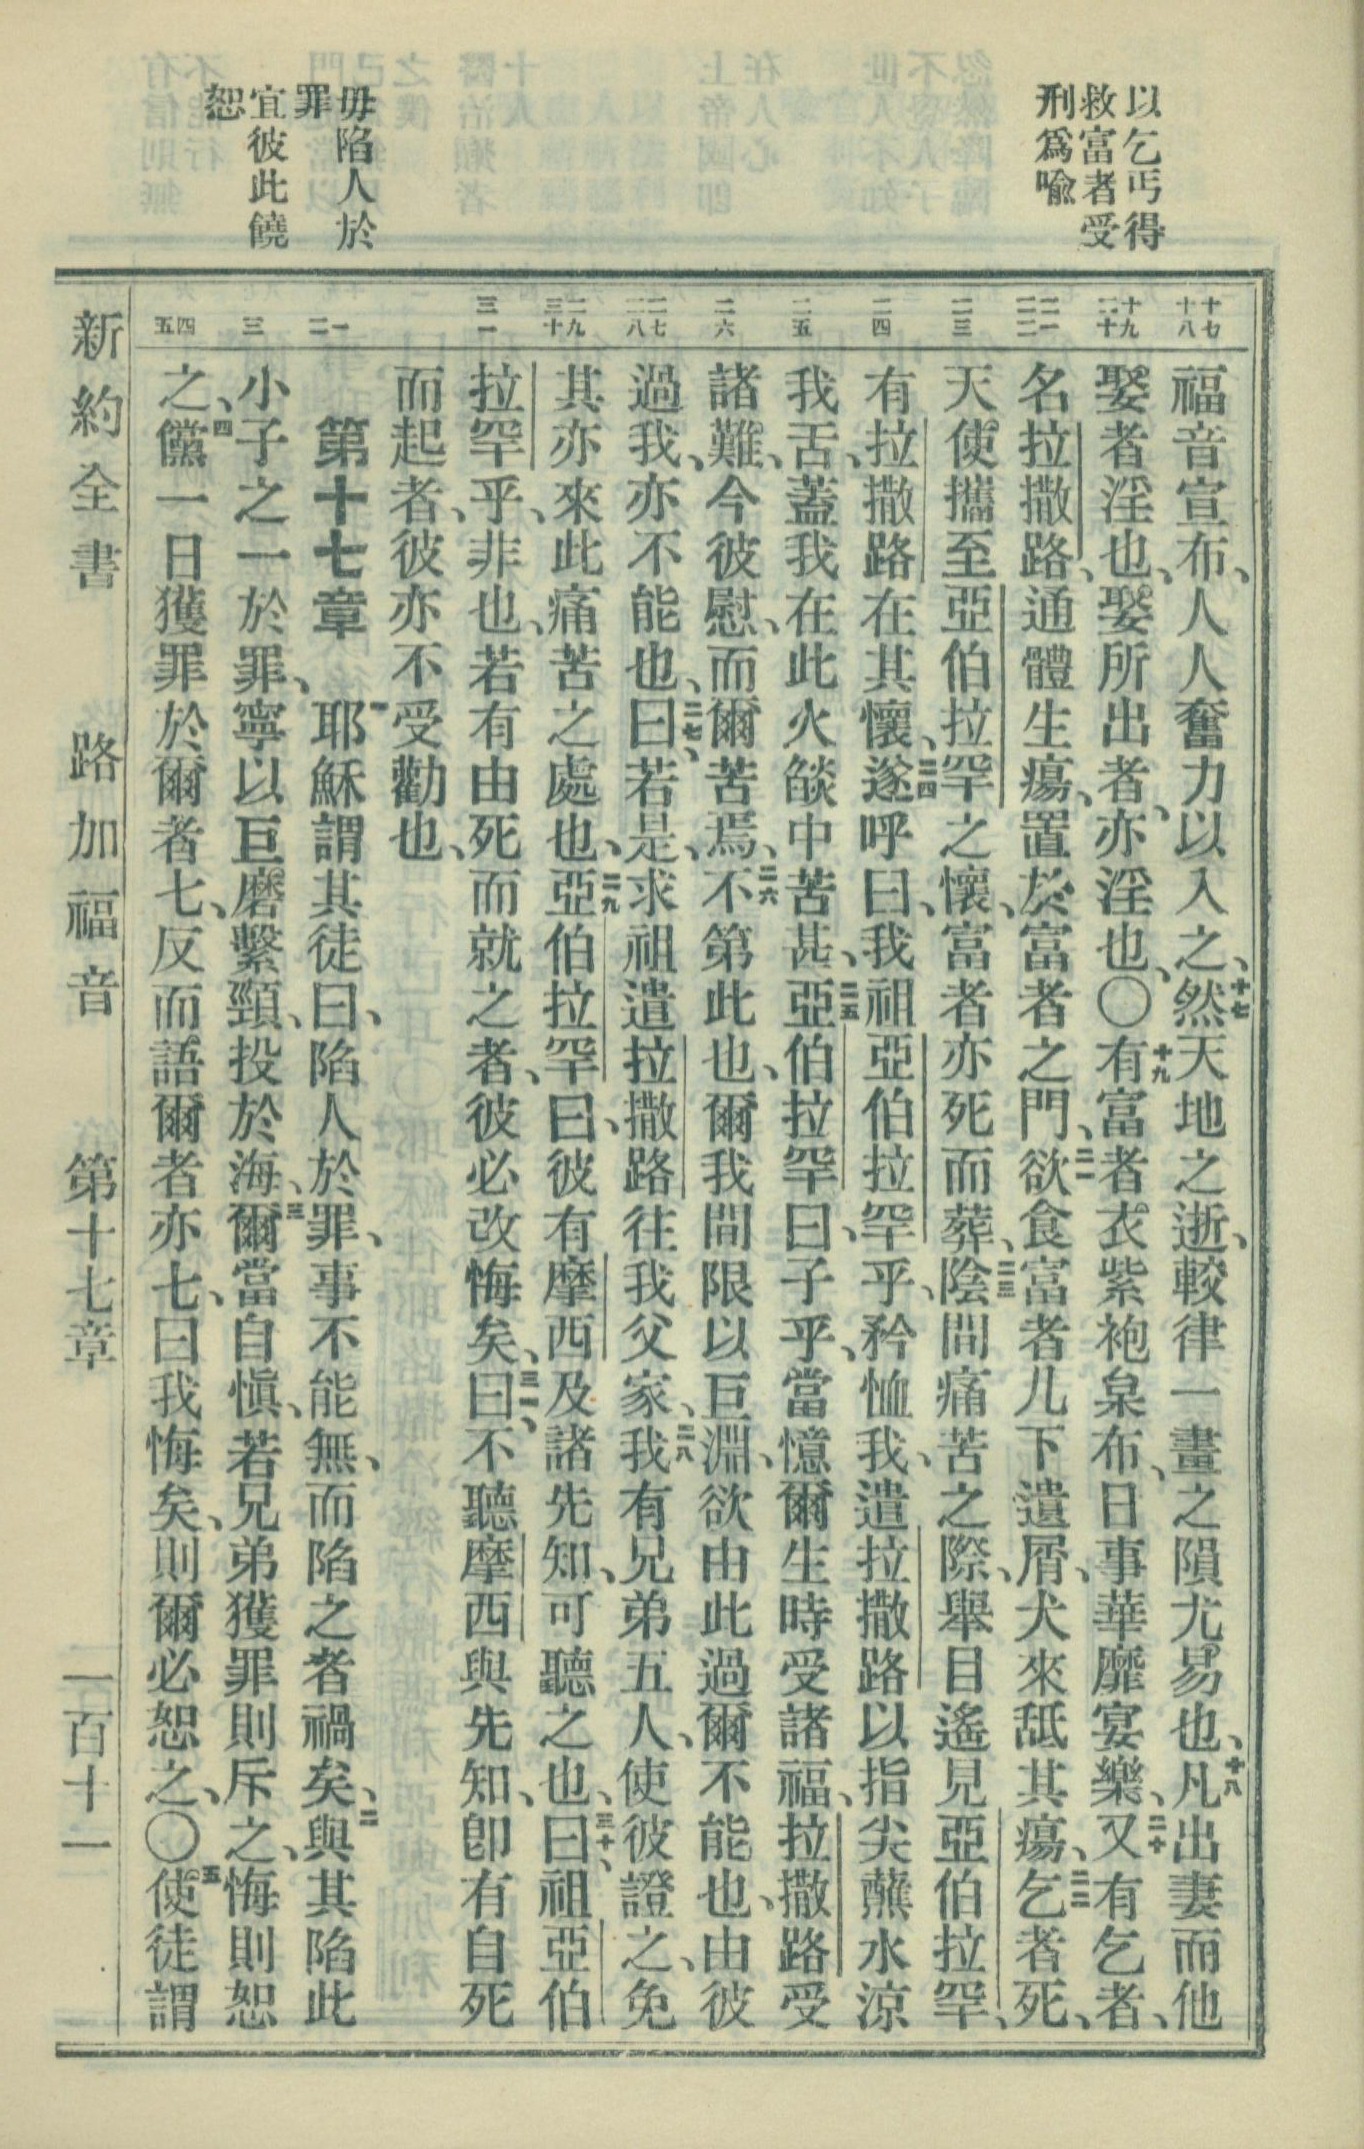 以乞丐得
救富者受
刑爲喩
毋陷人於
罪
宜彼此饒
恕
十七
十八
十九
二十
二一
二二
二三
二四
二五
二六
二七
二八
二九
三十
三一
一
二
三
四
五
福音宣布、人人奮力以入之、十七然天地之逝、較律一畫之隕尤易也、十八凡出妻而他
娶者淫也、娶所出者、亦淫也、〇十九有富者衣紫袍枲布、日事華靡宴樂、二十又有乞者、
名拉撒路、通體生瘍、置於富者之門、二一欲食富者几下遺屑、犬來舐其瘍、二二乞者死、
天使攜至亞伯拉罕之懷、富者亦死而葬、二三陰間痛苦之際、舉目遙見亞伯拉罕、
有拉撒路在其懷、二四遂呼曰、我祖亞伯拉罕乎、矜恤我、遣拉撒路以指尖蘸水涼
我舌、蓋我在此火燄中苦甚、二五亞伯拉罕曰、子乎、當憶爾生時受諸福、拉撒路受
諸難、今彼慰、而爾苦焉、二六不第此也、爾我間限以巨淵、欲由此過爾不能也、由彼
過我、亦不能也、二七曰、若是、求祖遣拉撒路往我父家、二八我有兄弟五人、使彼證之、免
其亦來此痛苦之處也、二九亞伯拉罕曰、彼有摩西及諸先知、可聽之也、三十曰、祖亞伯
拉罕乎、非也、若有由死而就之者、彼必改悔矣、三一曰、不聽摩西與先知、卽有自死
而起者、彼亦不受勸也、
第十七章 一耶穌謂其徒曰、陷人於罪、事不能無、而陷之者禍矣、二與其陷此
小子之一於罪、寧以巨磨繫頸、投於海、三爾當自愼、若兄弟獲罪則斥之、悔則恕
之、四儻一日獲罪於爾者七、反而語爾者亦七、曰我悔矣、則爾必恕之、〇五使徒謂
新約全書 路加福音 第十七章 一百十一